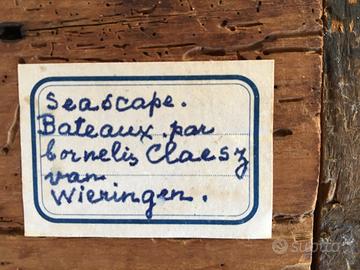 Seascape.
Bateaux. par
Cornelis Claesz
van
Wieringen.
subito